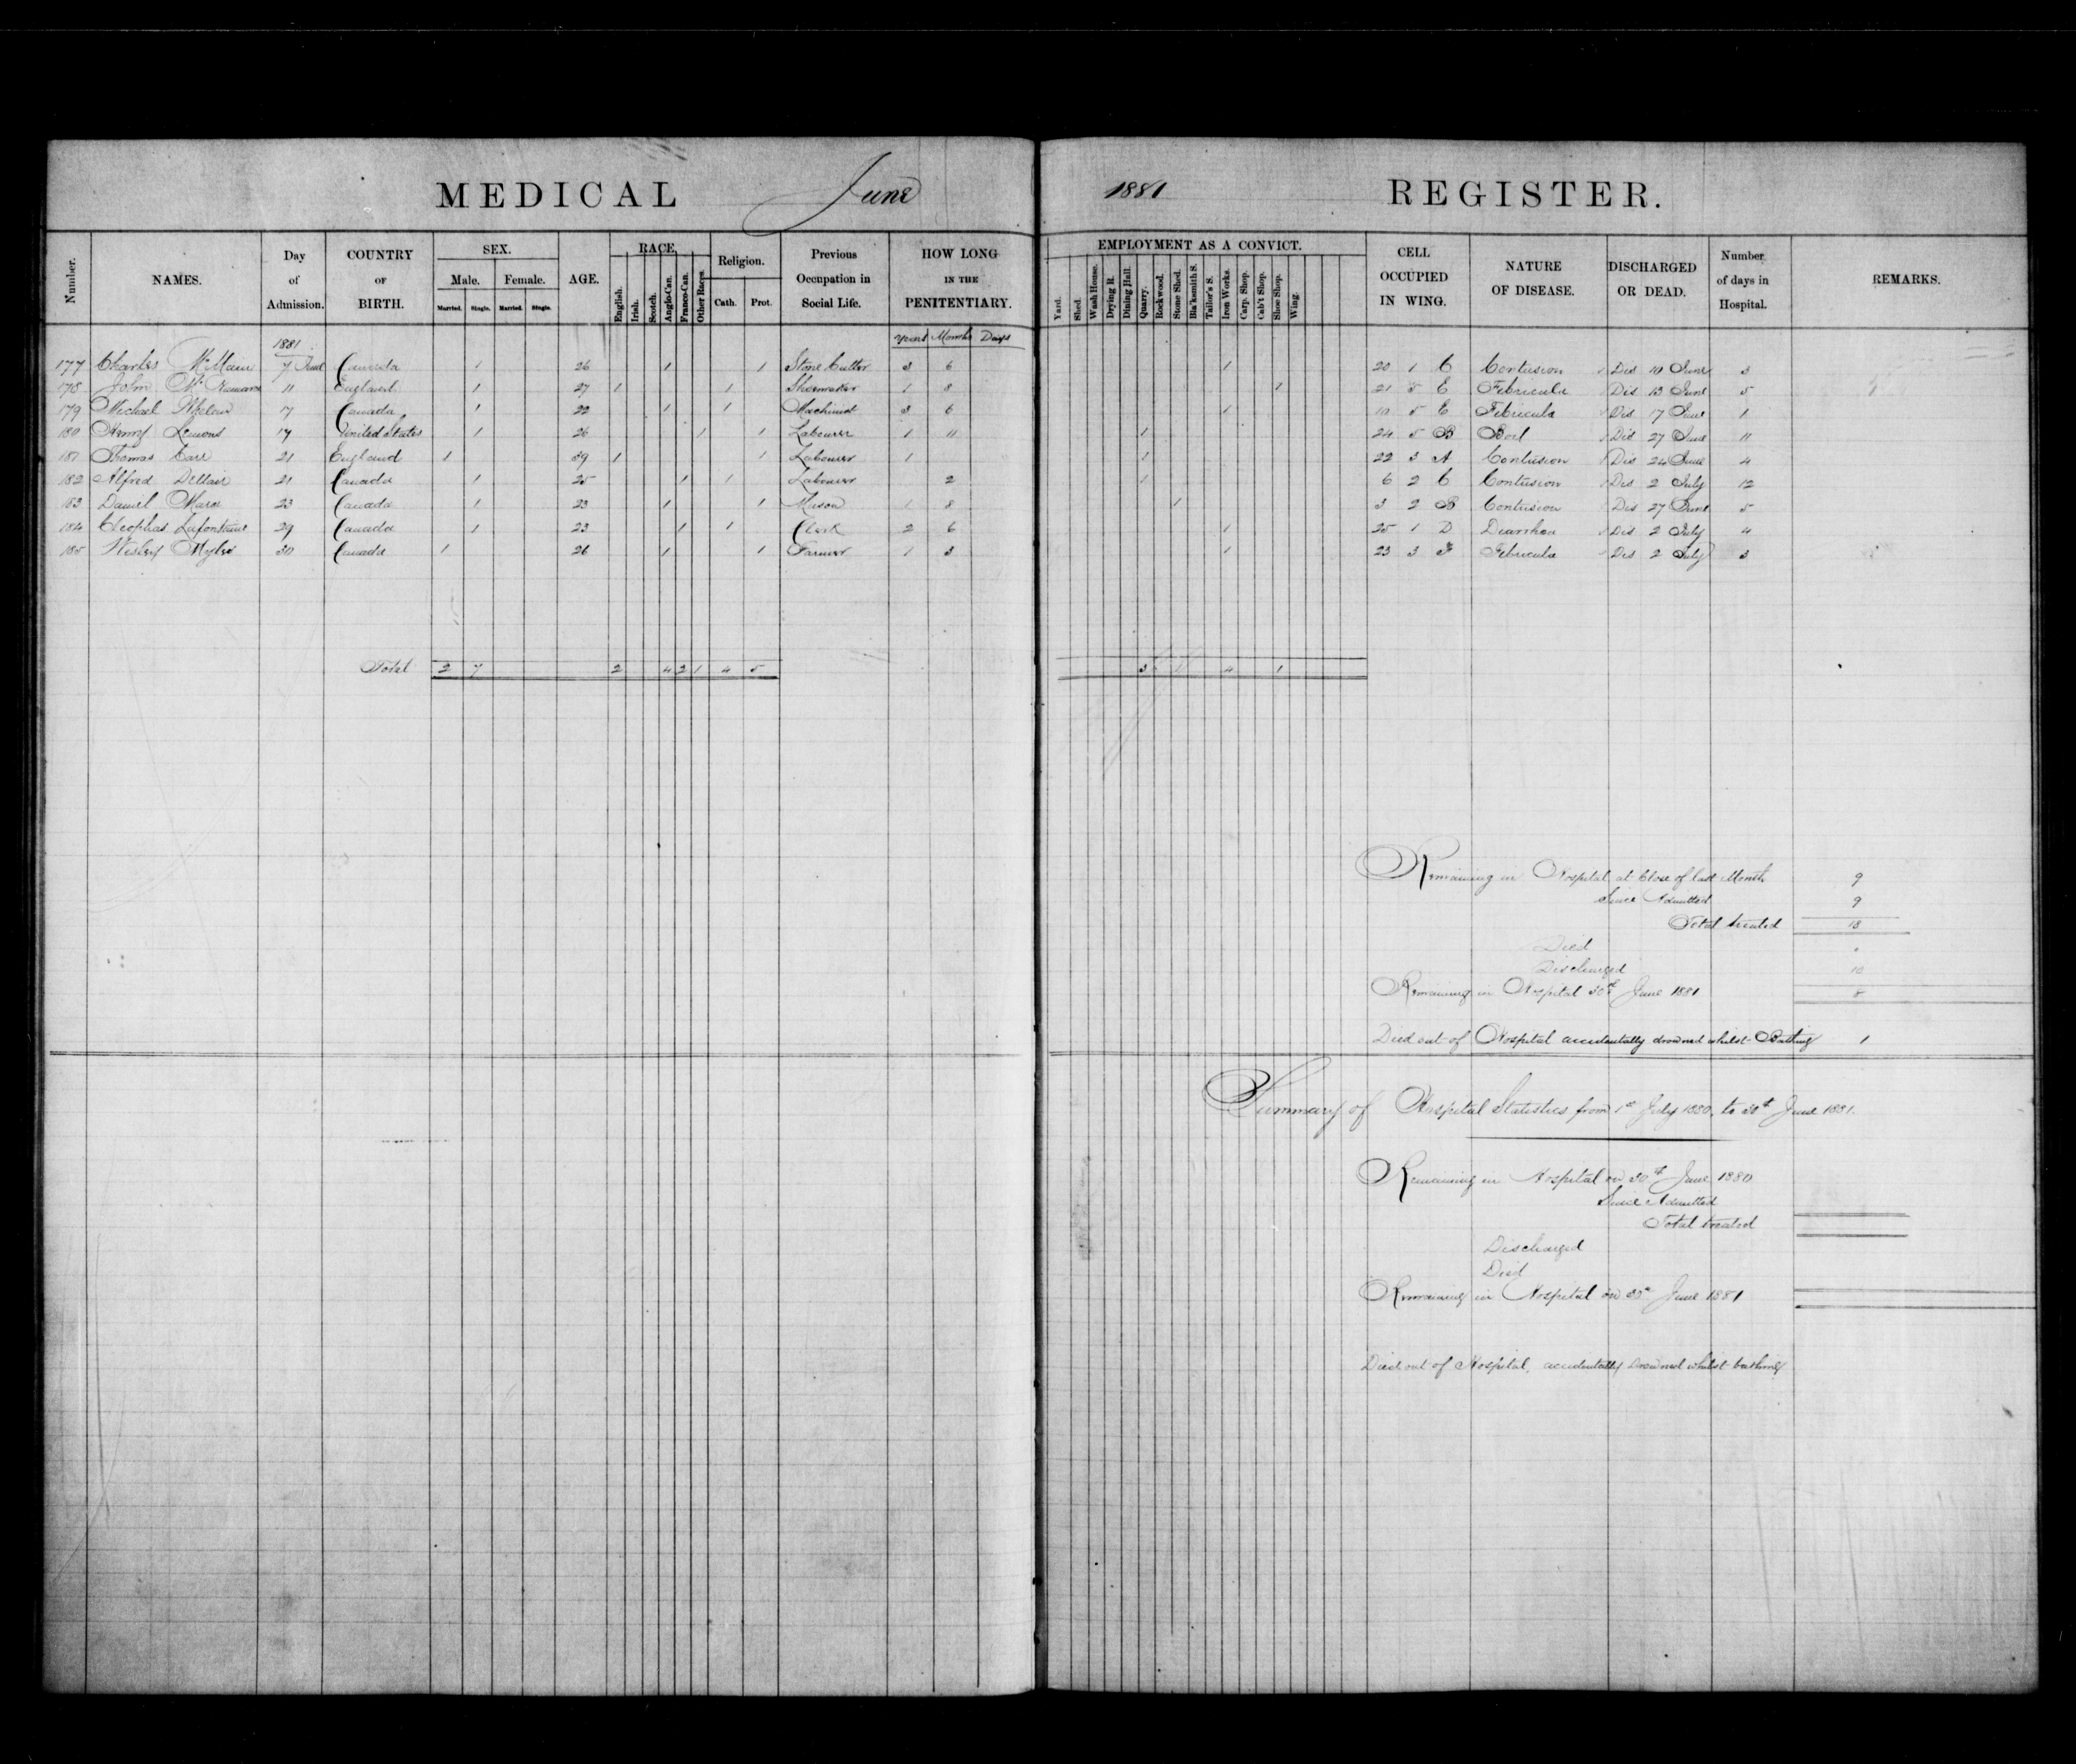 MEDICAL June 1881 REGISTER.
Number. NAMES. Day of Admission. COUNTRY OF BIRTH. SEX. Male. Married. Single. Female. Married. Single. AGE. RACE. English. Irish. Scotch. Anglo-Can. Franco-Can. Other Races. Religion. Cath. Prot. Previous Occupation in Social Life. HOW LONG IN THE PENITENTIARY. EMPLOYMENT AS A CONVICT. Yard. Shed. Wash House. Drying R. Dining Hall. Quarry. Rockwood. Stone Shed. Bla'ksmith S. Tailor's S. Iron Works. Carp. Shop. Cab't Shop. Shoe Shop. Wing. CELL OCCUPIED IN WING. NATURE OF DISEASE. DISCHARGED OR DEAD. Number of days in Hospital. REMARKS.
1881 Years Months Days
177 Charles 7 June Canada 1 26 1 1 Stone Cutter 3 6 1 20 1 C Contusion Dis 10 June 3
178 John 11 England 1 27 1 1 Shoemaker 1 8 1 21 E Febricula Dis 13 June 5
179 Michael Whelan 17 Canada 1 22 1 1 Machinist 3 6 1 10 5 E Febricula Dis 17 June 1
180 Henry Lemons 17 United States 1 26 1 1 Labourer 1 11 1 24 5 B Boil Dis 27 June 11
181 Thomas Carr 21 England 1 39 1 1 Labourer 1 1 22 3 A Contusion Dis 24 June 4
182 Alfred 21 Canada 1 25 1 1 Labourer 2 1 6 2 C Contusion Dis 2 July 12
183 Daniel 23 Canada 1 23 1 1 Mason 1 8 1 3 2 B Contusion Dis 27 June 5
184 Cleophas Lafontaine 29 Canada 1 23 1 1 Clerk 2 6 1 25 1 D Diarrhea Dis 2 July 4
185 Wesley 30 Canada 1 26 1 1 Farmer 1 3 1 23 3 F Febricula Dis 2 July 3
Total 2 7 2 4 2 1 4 5 3 1 4 1
Remaining in Hospital at Close of last Month 9
Since Admitted 9
Total treated 18
Died "
Discharged 10
Remaining in Hospital 30th June 1881 8
Died out of Hospital accidentally drowned whilst Bathing 1
Summary of Hospital Statistics from 1st July 1880, to 30th June 1881.
Remaining in Hospital on 30th June 1880
Since Admitted
Total treated
Discharged
Died
Remaining in Hospital on 30th June 1881
Died out of Hospital, accidentally drowned whilst bathing